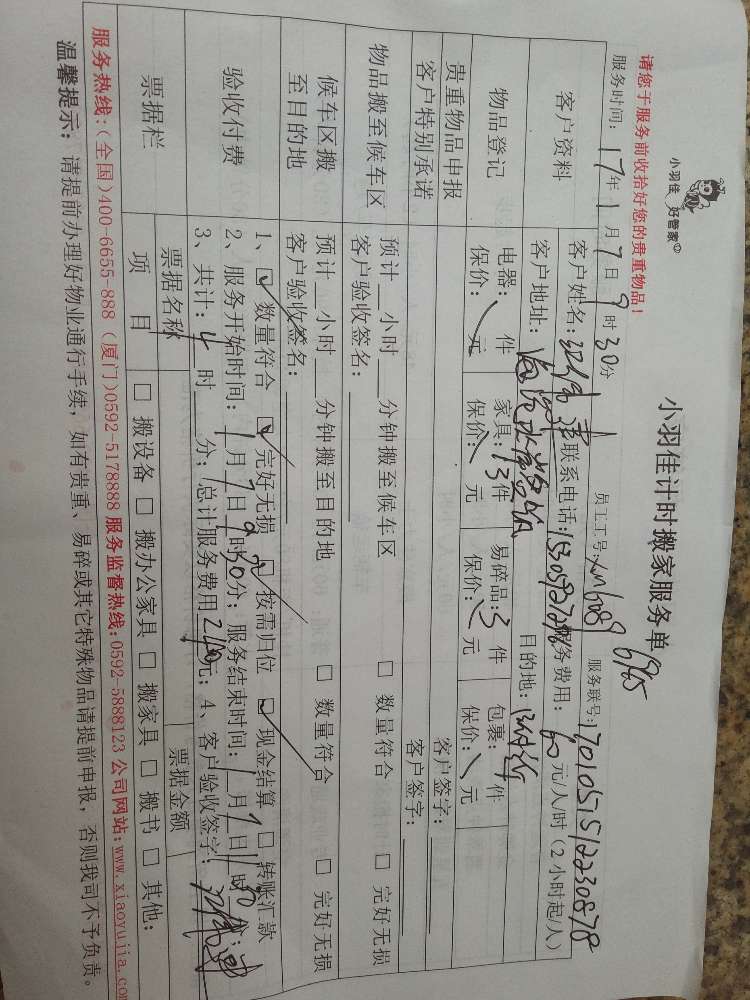 小羽佳 好管家
小羽佳计时搬家服务单
请您于服务前收拾好您的贵重物品！
服务时间：17年1月7日9时30分 员工工号： 服务联号：
客户资料 客户姓名： 联系电话： 服务费用：60元/人/时（2小时起/人）
客户地址： 目的地：
物品登记 电器：件 家具：13件 易碎品：3件 包裹：件
保价：元 保价：元 保价：元 保价：元
贵重物品申报 客户签字：
客户特别承诺 客户签字：
物品搬至候车区 预计__小时__分钟搬至候车区 □ 数量符合 □ 完好无损
客户验收签名：
候车区搬至目的地 预计__小时__分钟搬至目的地 □ 数量符合 □ 完好无损
客户验收签名：
验收付费 1、☑ 数量符合 ☑ 完好无损 ☑ 按需归位 ☑ 现金结算 □ 转账汇款
2、服务开始时间：1月7日9时30分；服务结束时间：1月7日11时30分；
3、共计：4时__分；总计服务费用240元；4、客户验收签字：
票据栏 票据名称 票据金额
项目 □ 搬设备 □ 搬办公家具 □ 搬家具 □ 搬书 □ 其他：
服务热线：(全国)400-6655-888 (厦门)0592-5178888 服务监督热线：0592-5888123 公司网站：www.xiaoyujia.com
温馨提示：请提前办理好物业通行手续，如有贵重、易碎或其它特殊物品请提前申报，否则我司不予负责。